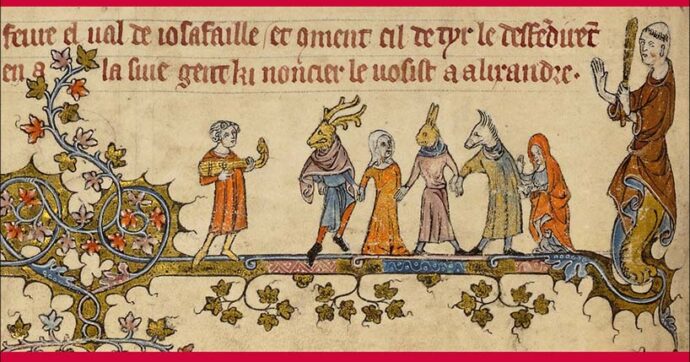 feure el ual de iosafaille / et qment cil de tyr le desfēdirēt
en a la suie gent ki noncier le uosist a alixandre.